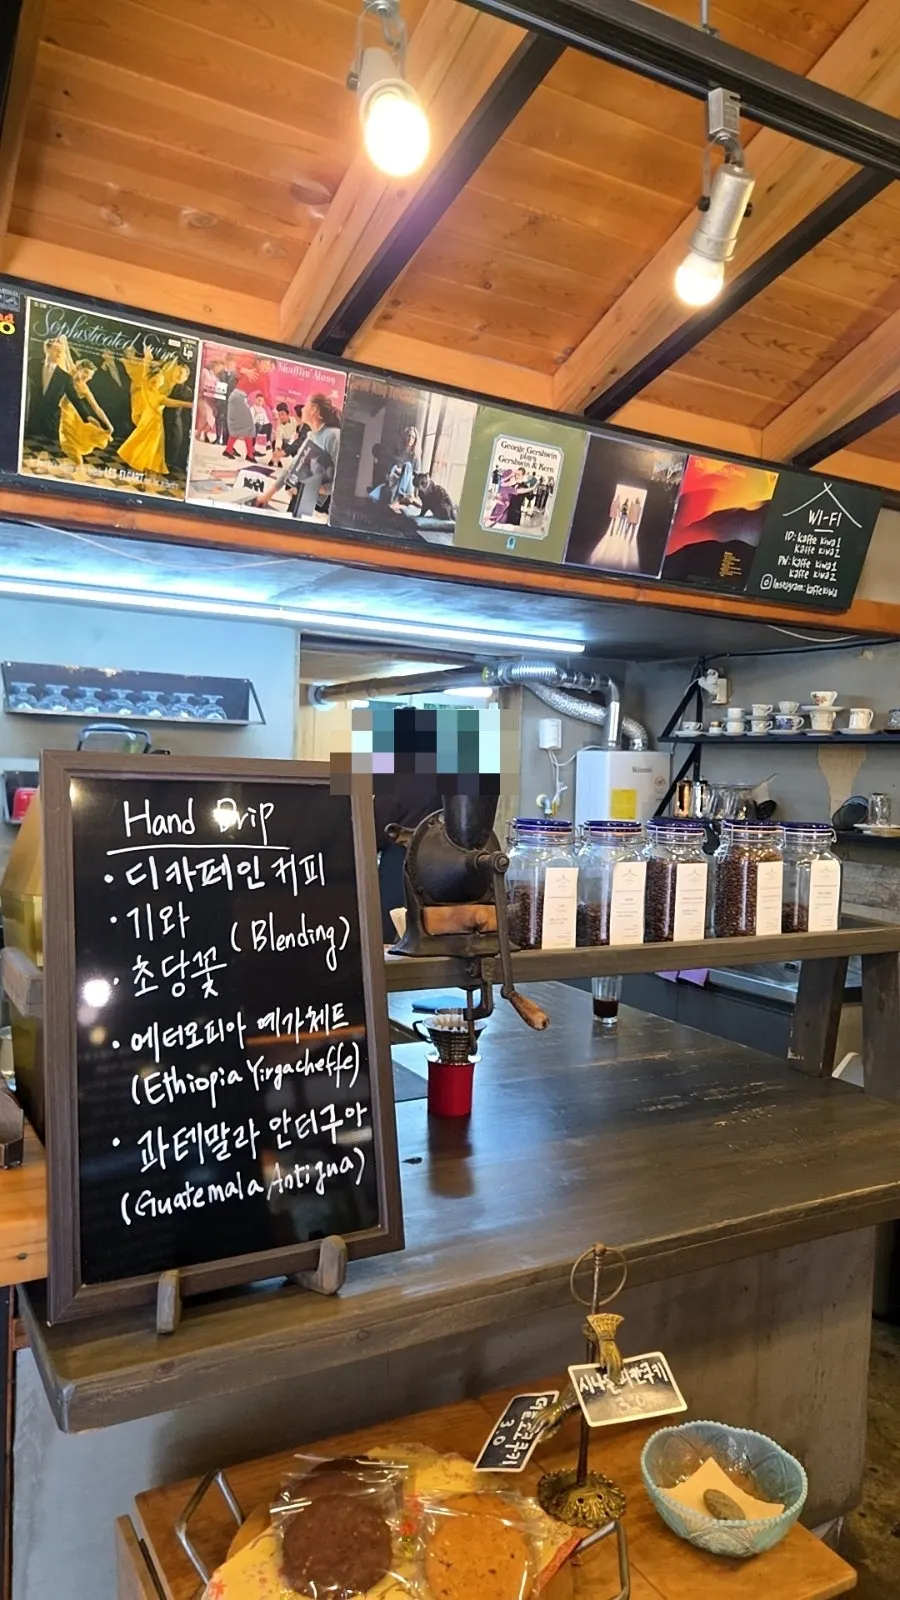 Sophisticated Swing
LP
LES ELGART
Shufflin' Along
George Gershwin
plays
Gershwin & Kern
WI-FI
ID: kaffe kiwa1
kaffe kiwa2
PW: kaffe kiwa1
kaffe kiwa2
Instagram: kaffekiwa
Hand Drip
· 디카페인 커피
· 기와
(Blending)
· 초당꽃
· 에터오피아 예가체트
(Ethiopia Yirgacheffe)
· 과테말라 안터구아
(Guatemala Antigua)
시나몬피칸쿠키
3.0
3.0